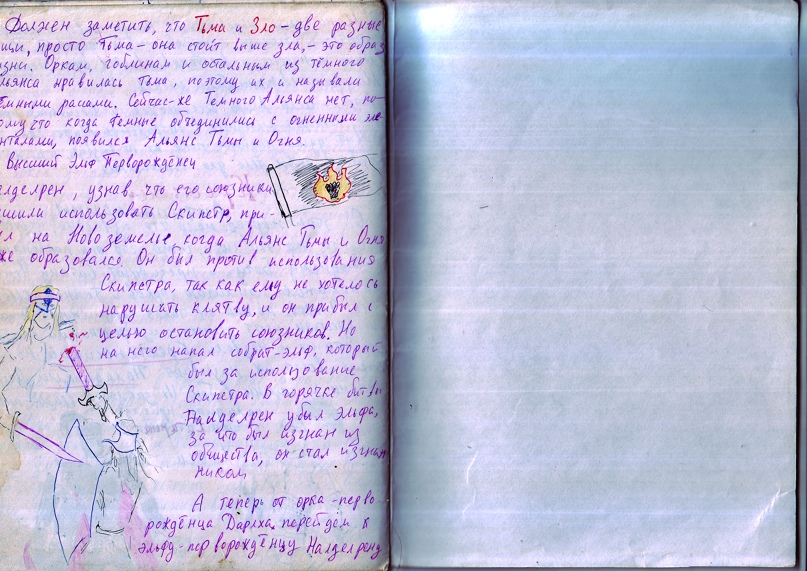 Должен заметить, что Тьма и Зло – две разные
щи, просто Тьма – она стоит выше зла, – это образ
зни. Оркам, гоблинам и остальным из тёмного
льянса нравилась Тьма, поэтому их и называли
ёмными расами. Сейчас-же Темного Альянса нет, по-
ому что когда темные объединились с огненными ле-
нталами, появился Альянс Тьмы и Огня.
Высший Эльф Перворождёнец
алделрен, узнав что его союзники
шили использовать Скипетр, при-
л на Новоземелье когда Альянс Тьмы и Огня
же образовался. Он был против использования
Скипетра, так как ему не хотелось
нарушать клятву, и он прибыл с
целью остановить союзников. Но
на него напал собрат-эльф, который
был за использование
Скипетра. В горячке битвы
Налделрен убил эльфа,
за что был изгнан из
общества, он стал изгнан
ником.
А теперь от орка-перво
рождёнца Дарлха перейдем к
эльфу-перворождёнцу Налделрену